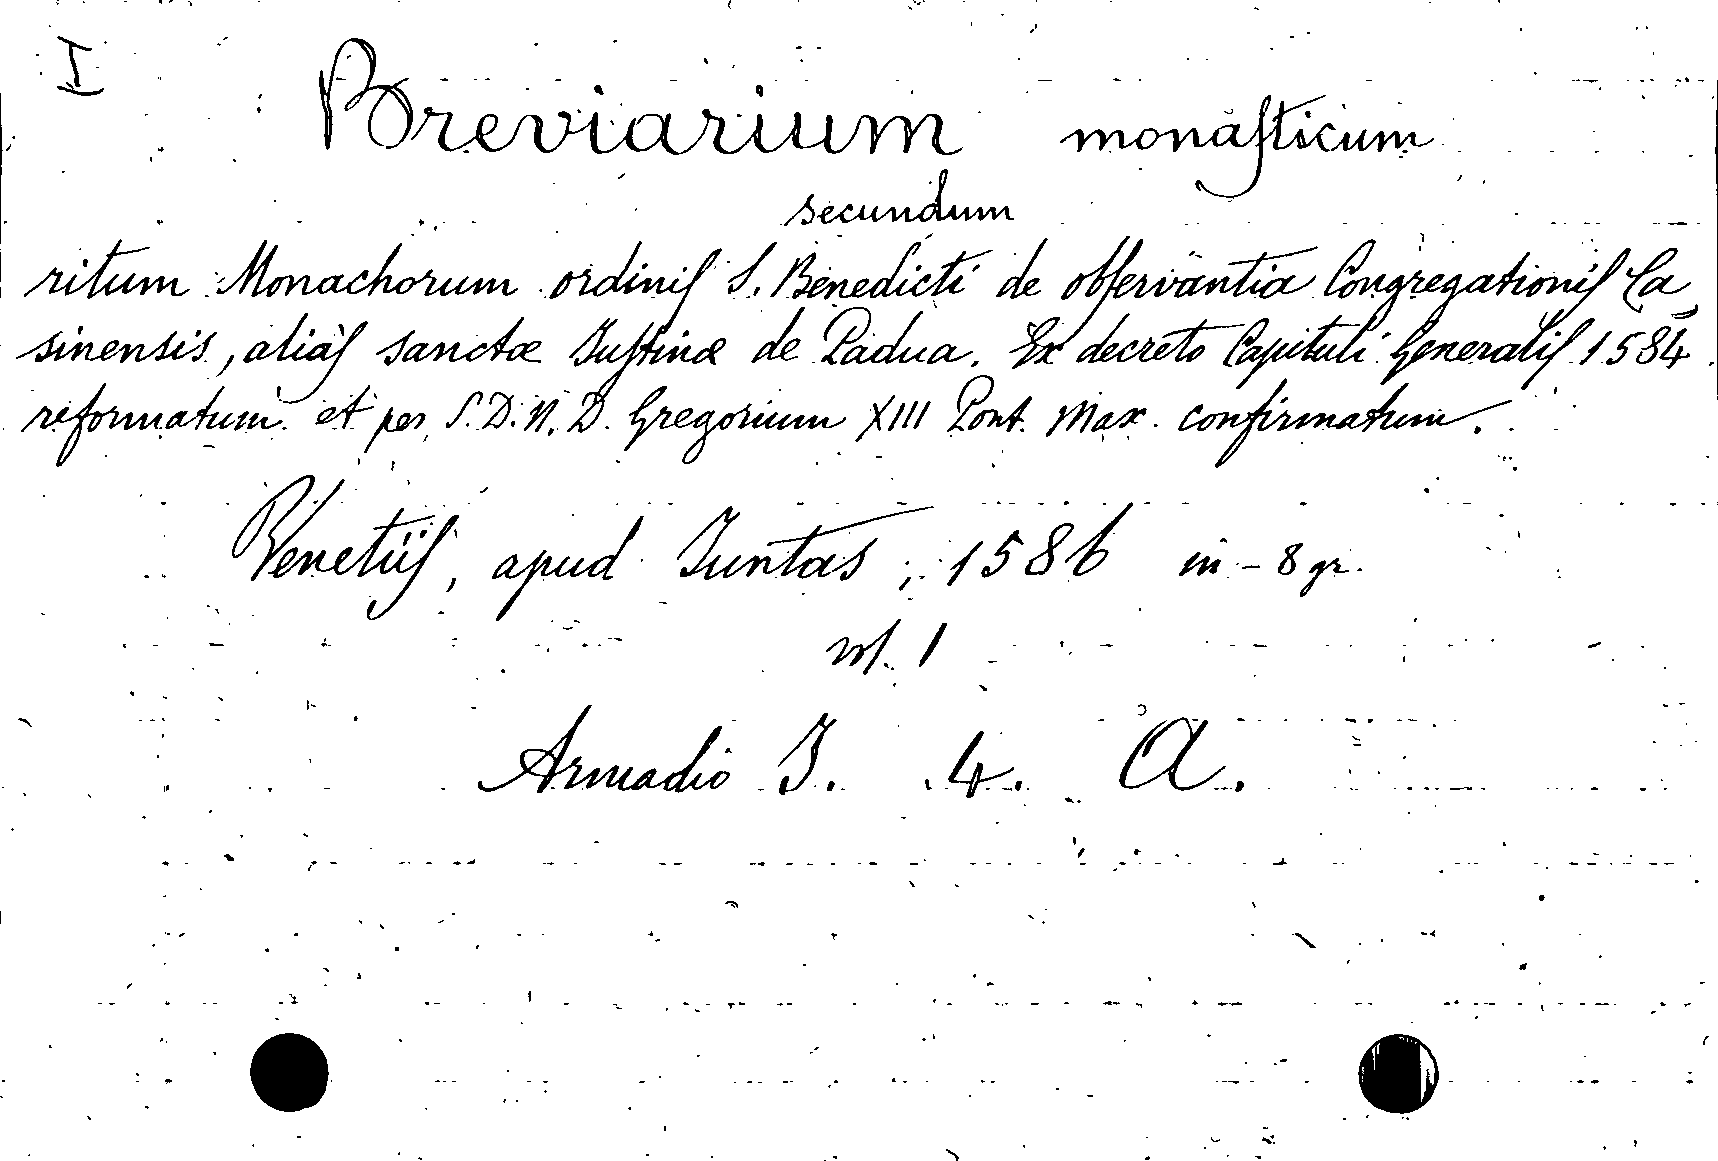 I
Breviarium monaſticum
secundum
ritum Monachorum ordiniſ S. Benedicti de obſervantia Congregationiſ Ca
sinensis, aliàſ sanctæ Juſtinæ de Padua. Ex decreto Capituli Generaliſ 1584
reformatum et per S. D. N. D. Gregorium XIII Pont. Max. confirmatum.
Venetiiſ, apud Juntas, 1586 in-8 gr.
vol. 1
Armadio I. 4. A.